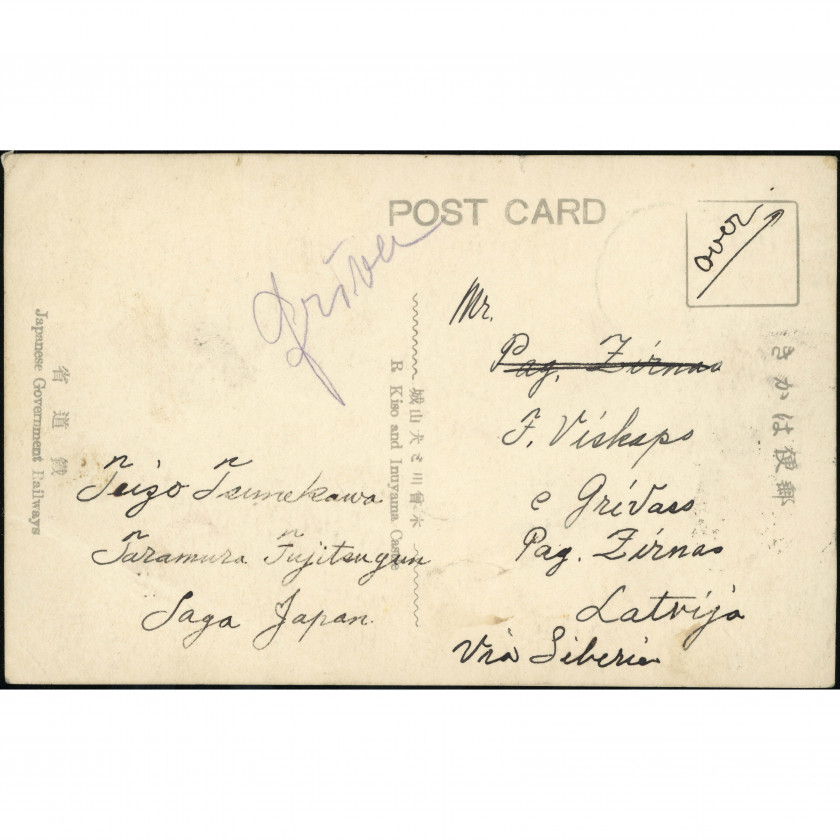 POST CARD
over
Grīva
Mr.
Pag. Zirnas
F. Viskaps
e Grívass
Pag. Zirnas
Latvija
Via Siberia
Teizo Tsumekawa
Taramura Fujitsugun
Saga Japan.
きかは便郵
城山犬と川曾木
R Kiso and Inuyama Castle
省道鐵
Japanese Government Railways